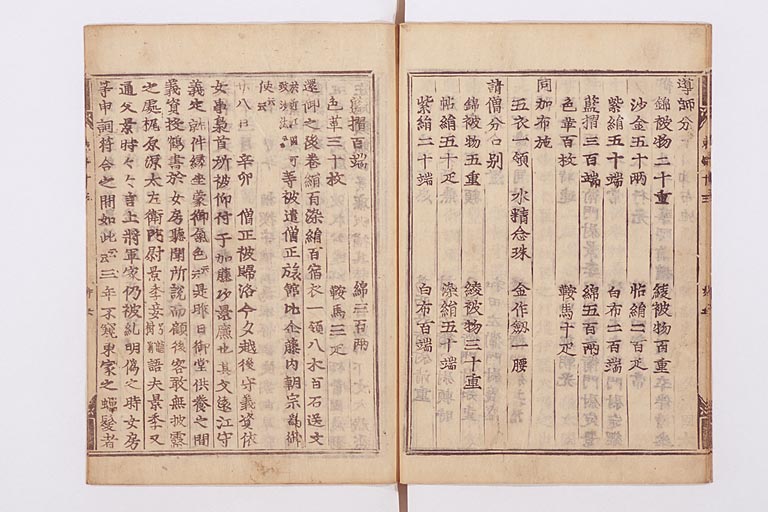 導師分
錦被物二十重 綾被物百重
沙金五十兩 帖絹二百疋
紫絹五十端 白布二百端
藍摺三百端 綿五百兩
色革百枚 鞍馬十疋
同加布施
五衣一領 水精念珠 金作劔一腰
請僧分口別
錦被物五重 綾被物三十重
帖絹五十疋 染絹五十端
紫絹二十端 白布百端
藍摺百端 綿三百兩
色革三十枚 鞍馬三疋
還御之後卷絹百染絹百宿衣一領八木百石送文
可等被遣僧正旅館比企藤内朝宗
使
廿八日 辛卯 僧正被歸洛今夕越後守義資依
女事梟首所被仰付于加藤次景廉也其父遠江守
義定就件縁坐蒙御氣色是昨日御堂供養之間
義資投艶書於女房聽聞所訖而顧後害敢無披露
之處梶原源太左衛門尉景季妾語夫景季又
通父景時々々言上將軍家仍被糺明僞之時女房
等申詞符合之間如此三年不窺東家之蟬髮者